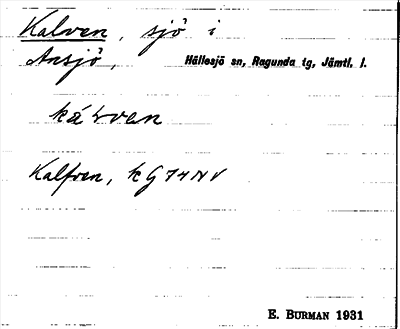 Kalven, sjö i
Ansjö, Hällesjö sn, Ragunda tg, Jämtl. l.
Kalfven, k G 74 NV
E. BURMAN 1931